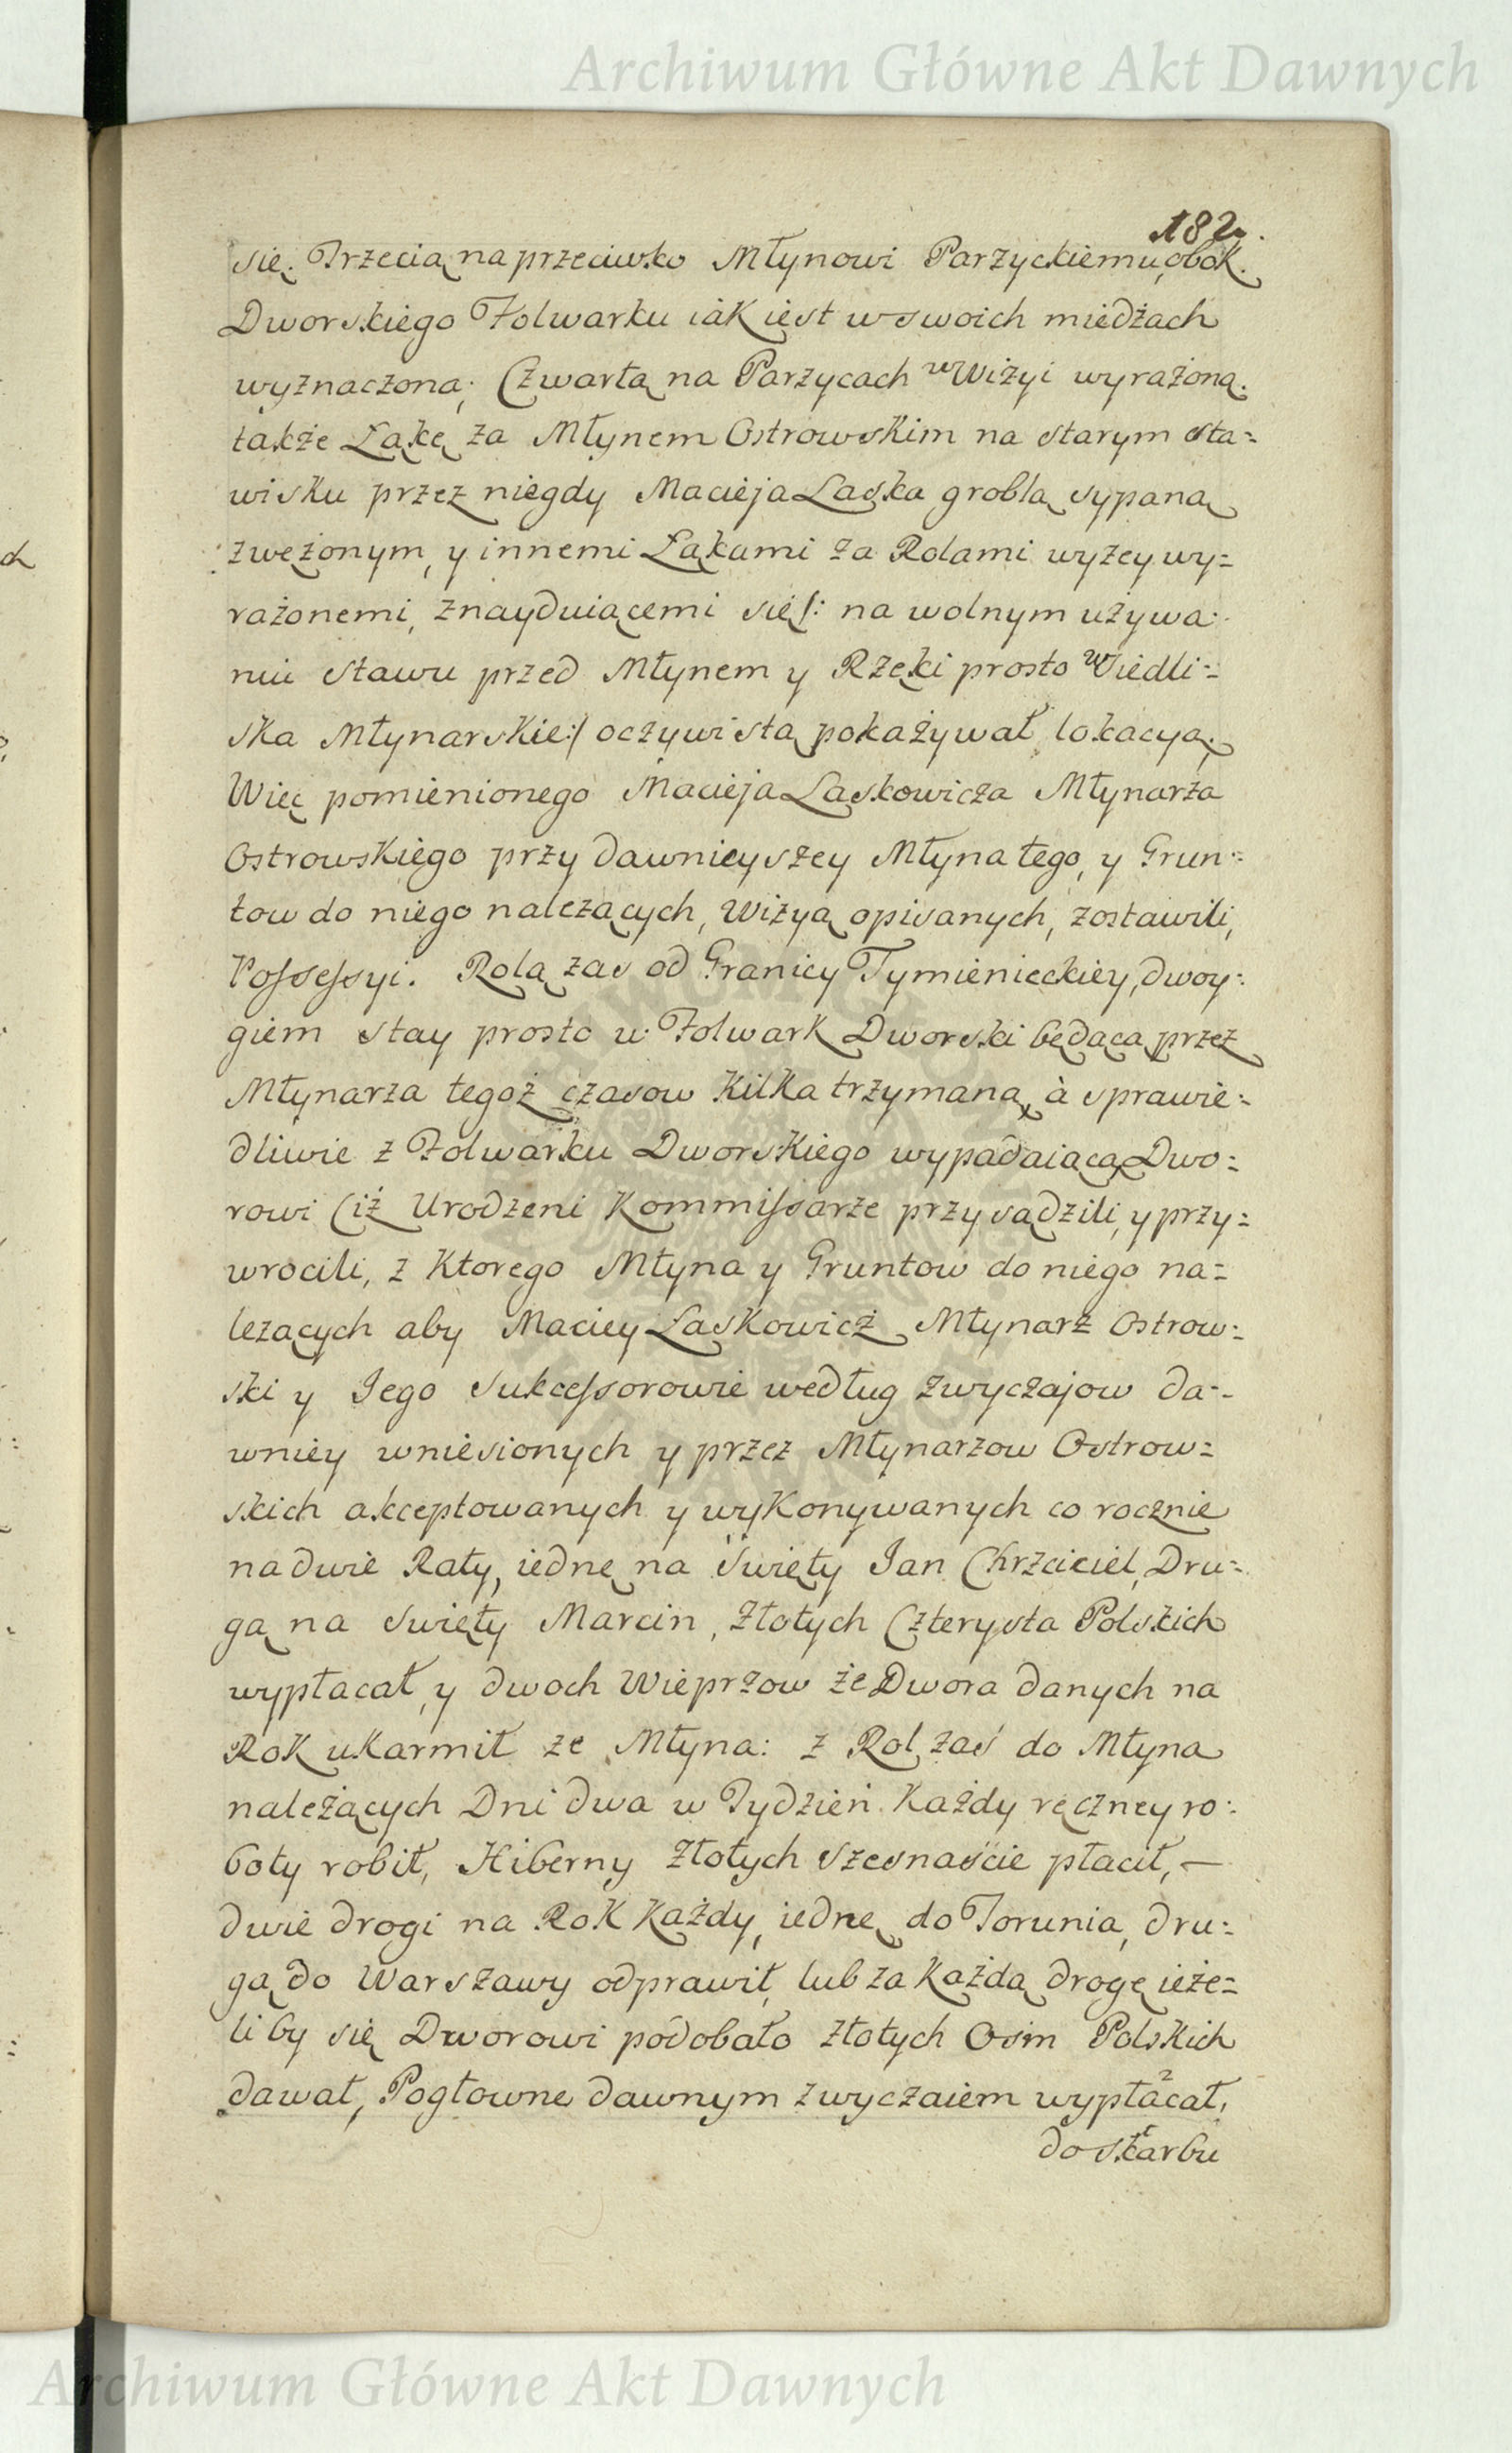 Archiwum Główne Akt Dawnych
182.
się. Trzecią naprzeciwko Młynowi Parzyckiemu, obok.
Dworskiego Folwarku iak iest w swoich miedźach
wyznaczoną; Czwartą na Parzycach w Wizyi wyrażoną.
także Łąkę za Młynem Ostrowskim na starym sta=
wisku przez niegdy Macieja Laska groblą sypaną
zwężonym, y innemi Łąkami za Rolami wyżey wy=
rażonemi, znayduiącemi się /: na wolnym używa:
niu Stawu przed Młynem y Rzeki prosto w Siedli=
ska Młynarskie :/ oczywistą pokazywał lokacyą;
Więc pomienionego Macieja Laskowicza Młynarza
Ostrowskiego przy dawnieyszey Młyna tego, y Grun=
tow do niego należących, Wizyą opisanych, zostawili,
Possessyi. Rolą zas od Granicy Tymienieckiey, dwoy:
giem stay prosto w Folwark Dworski będącą przez
Młynarza tegoż czasow kilka trzymaną, à sprawie=
dliwie z Folwarku Dworskiego wypadaiącą Dwo=
rowi Ciż Urodzeni Kommissarze przysądzili, y przy=
wrocili, z Ktorego Młyna y Gruntow do niego na=
lezących aby Maciey Laskowicz Młynarz Ostrow=
ski y Jego Sukcessorowie według zwyczajow da=
wniey wniesionych y przez Młynarzow Ostrow=
skich akceptowanych y wykonywanych co rocznie
na dwie Raty, iednę na Święty Jan Chrzciciel, Dru=
gą na Swięty Marcin, Złotych Czterysta Polskich
wypłacał, y dwoch Wieprzow ze Dwora danych na
Rok ukarmił ze Młyna: z Rol zaś do Młyna
należących Dni dwa w Tydzień Każdy ręczney ro=
boty robił, Hiberny Złotych szesnaście płacił, —
dwie drogi na Rok Każdy, iednę do Torunia, dru=
gą do Warszawy odprawił, lub za każdą drogę ieże=
liby się Dworowi podobało złotych Osm Polskich
dawał, Pogłowne dawnym zwyczaiem wypłacał,
do Skarbu
Archiwum Główne Akt Dawnych